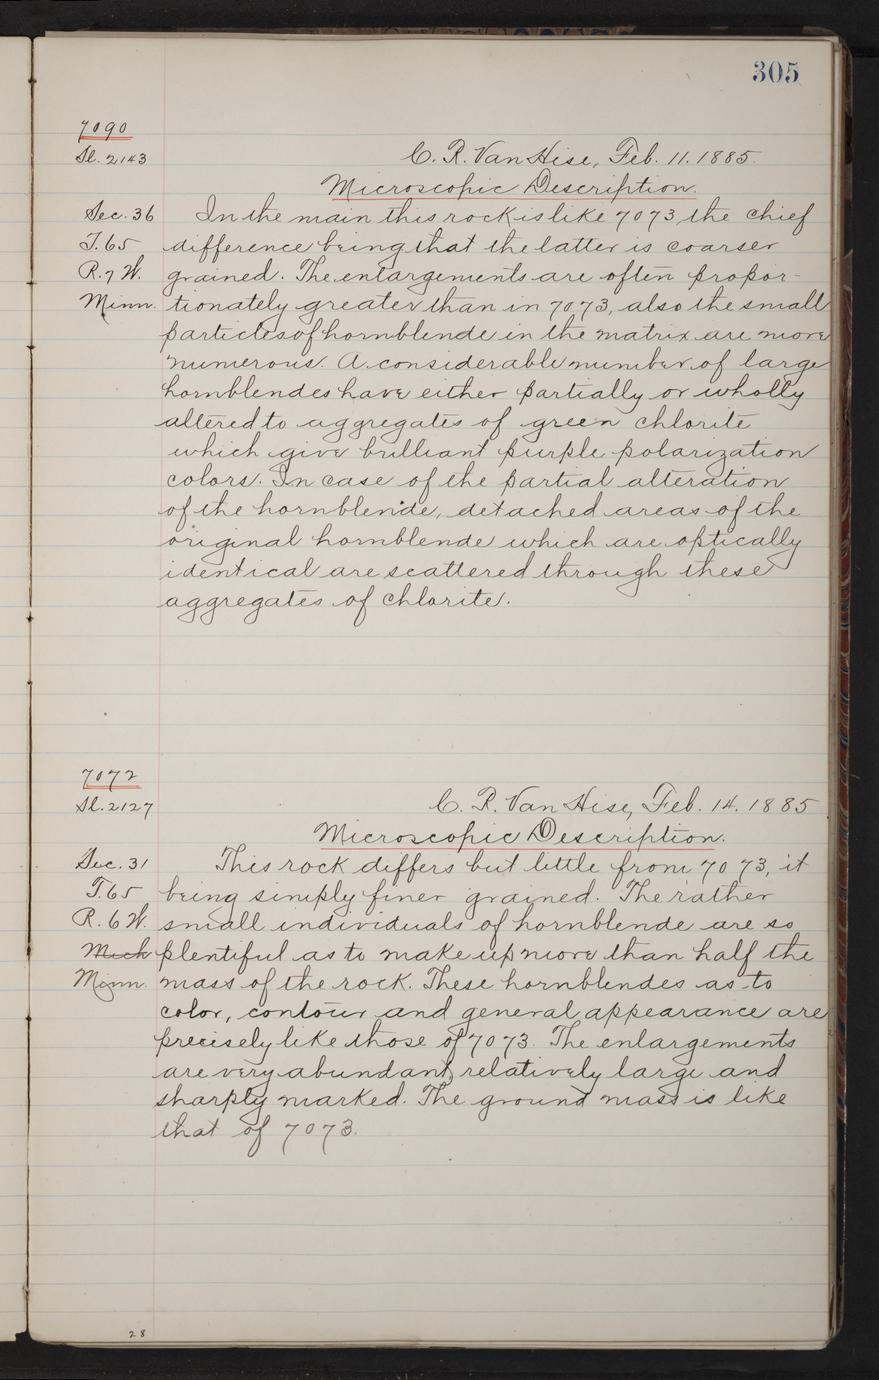 305
7090
Sl. 2143
C. R. Van Hise, Feb. 11. 1885.
Microscopic Description.
Sec. 36
T. 65
R. 7 W.
Minn.
In the main this rock is like 7073, the chief
difference being that the latter is coarser
grained. The enlargements are often propor-
tionately greater than in 7073, also the small
particles of hornblende in the matrix are more
numerous. A considerable number of large
hornblendes have either partially or wholly
altered to aggregates of green chlorite
which give brilliant purple polarization
colors. In case of the partial alteration
of the hornblende, detached areas of the
original hornblende which are optically
identical are scattered through these
aggregates of chlorite.
7072
Sl. 2127
C. R. Van Hise, Feb. 14. 1885
Microscopic Description.
Sec. 31
T. 65
R. 6 W.
Mich
Minn.
This rock differs but little from 7073, it
being simply finer grained. The rather
small individuals of hornblende are so
plentiful as to make up more than half the
mass of the rock. These hornblendes as to
color, contour and general appearance are
precisely like those of 7073. The enlargements
are very abundant, relatively large and
sharply marked. The ground mass is like
that of 7073.
28